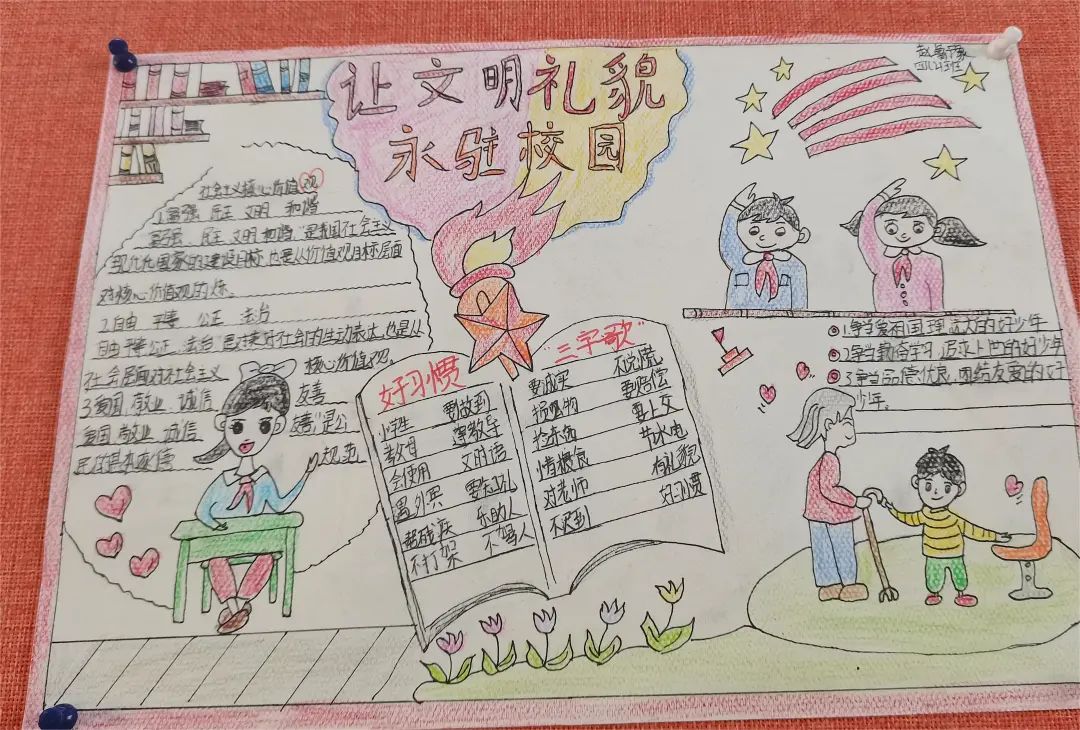 让文明礼貌
永驻校园
四(4)班
社会主义核心价值观
1.富强 民主 文明 和谐
富强、民主、文明、和谐,"是我国社会主义
国家的建设目标,也是从价值观目标层面
对核心价值观的
2.自由 平等 公正 法治
自由 平等 公正、法治"是对美好社会的生动表达,也是从
社会层面对社会主义 核心价值观。
3.爱国、敬业、诚信 友善
爱国 敬业 诚信 友善"是公
民 基本道德 规范
好习惯
小学生 要做到
尊教导
会使用 文明语
遇外宾 要知礼
帮残疾 乐助人
不打架 不骂人
"三字歌"
要诚实 不说谎
损坏物 要赔偿
捡东西 要上交
惜粮食 节水电
对老师 有礼貌
不迟到 好习惯
1.争当爱祖国理 远大的好少年
2.争当勤奋学习,追求上进的好少年
3.争当品德优良,团结友爱的好
少年。